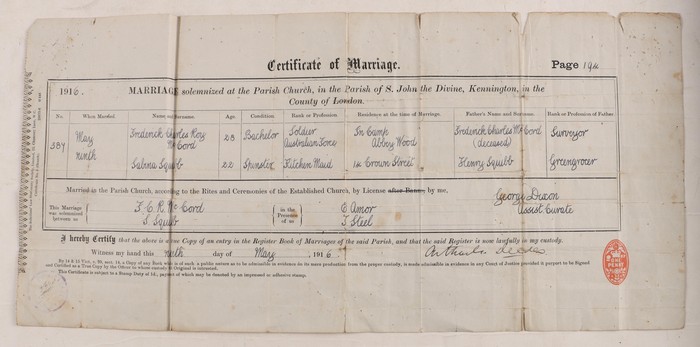 Certificate of Marriage.
Page 194
1916. MARRIAGE solemnized at the Parish Church, in the Parish of S. John the Divine, Kennington, in the County of London.
No. When Married. Name and Surname. Age Condition. Rank or Profession. Residence at the time of Marriage. Father's Name and Surname. Rank or Profession of Father.
387 May ninth
Frederick Charles Roy McCord 28 Bachelor Soldier Australian Force In Camp Abbey Wood Frederick Charles McCord (deceased) Surveyor
Sabina Squibb 22 Spinster Kitchen Maid 1a Crown Street Henry Squibb Greengrocer
Married in the Parish Church, according to the Rites and Ceremonies of the Established Church, by License after Banns, by me,
George Dixon
Assist Curate
This Marriage was solemnized between us
F. C. R. McCord
S. Squibb
in the Presence of us
E Amor
J Steel
I hereby Certify that the above is a true Copy of an entry in the Register Book of Marriages of the said Parish, and that the said Register is now lawfully in my custody.
Witness my hand this ninth day of May, 1916.
By 14 & 15 Vict. c. 99, sect. 14, a Copy of any Book which is of such a public nature as to be admissible in evidence on its mere production from the proper custody, is made admissible in evidence in any Court of Justice provided it purport to be Signed
and Certified as a True Copy by the Officer to whose custody the Original is intrusted.
This Certificate is subject to a Stamp Duty of 1d., payment of which may be denoted by an impressed or adhesive stamp.
ONE PENNY